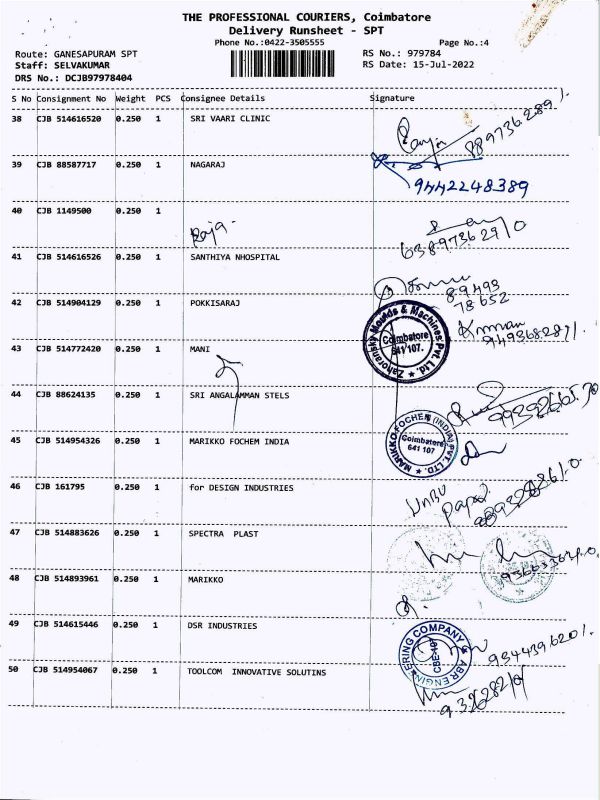 THE PROFESSIONAL COURIERS, Coimbatore
Delivery Runsheet - SPT
Phone No.:0422-3505555
Page No.:4
Route: GANESAPURAM SPT
RS No.: 979784
Staff: SELVAKUMAR
RS Date: 15-Jul-2022
DRS No.: DCJB97978404
S No Consignment No Weight PCS Consignee Details Signature
38 CJB 514616520 0.250 1 SRI VAARI CLINIC
39 CJB 88587717 0.250 1 NAGARAJ
9442248389
40 CJB 1149500 0.250 1
Raja.
41 CJB 514616526 0.250 1 SANTHIYA NHOSPITAL
89493
78652
42 CJB 514904129 0.250 1 POKKISARAJ
Zahoransky Moulds & Machines Pvt. Ltd.
Coimbatore
641 107.
43 CJB 514772420 0.250 1 MANI
44 CJB 88624135 0.250 1 SRI ANGALAMMAN STELS
45 CJB 514954326 0.250 1 MARIKKO FOCHEM INDIA
MARIKKO FOCHEM (INDIA) PVT. LTD.
Coimbatore
641 107
46 CJB 161795 0.250 1 for DESIGN INDUSTRIES
47 CJB 514883626 0.250 1 SPECTRA PLAST
48 CJB 514893961 0.250 1 MARIKKO
49 CJB 514615446 0.250 1 DSR INDUSTRIES
ABR ENGINEERING COMPANY
50 CJB 514954067 0.250 1 TOOLCOM INNOVATIVE SOLUTINS